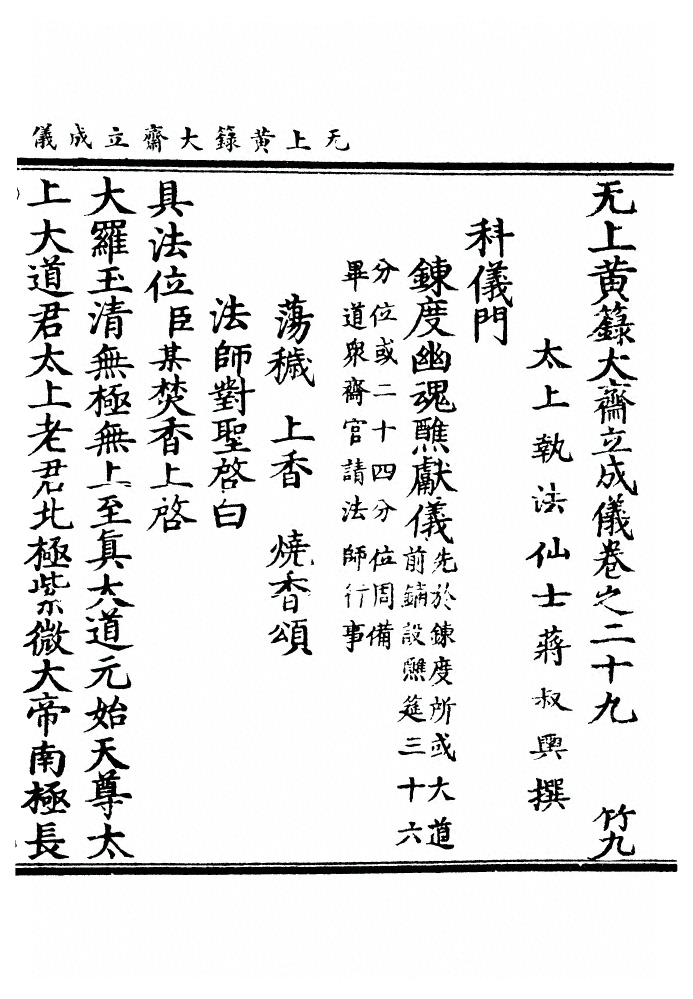 无上黃籙大齋立成儀
无上黃籙大齋立成儀卷之二十九 竹九
太上執法仙士蔣叔輿撰
科儀門
鍊度幽魂醮獻儀先於鍊度所或大道
前鋪設醮筵三十六
分位或二十四分位周備
畢道眾齋官請法師行事
蕩穢 上香 燒香頌
法師對聖啓白
具法位臣某焚香上啓
大羅玉清無極無上至真大道元始天尊太
上大道君太上老君北極紫微大帝南極長